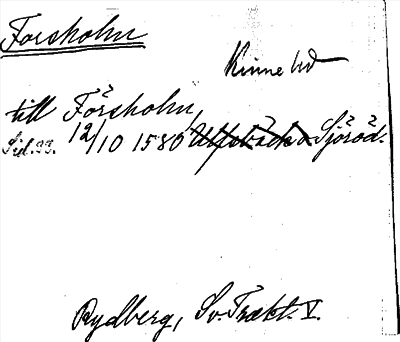 Forsholm
Kinne hd
till Försholm
Sid. 33. 12/10 1580 Sjöröd.
Rydberg, Sv. Trakt. V.